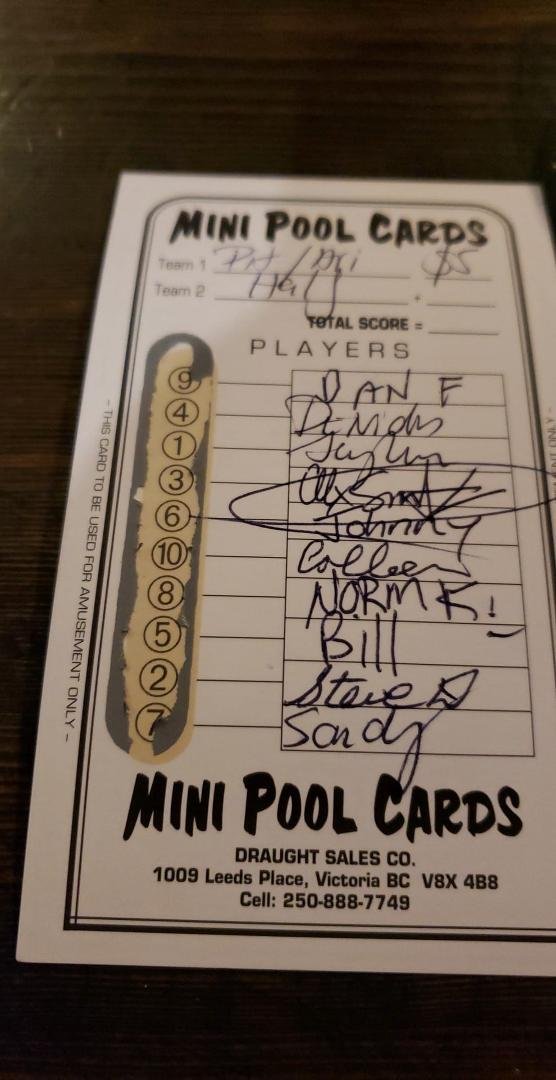 MINI POOL CARDS
Team 1 $5
Team 2 Half +
TOTAL SCORE =
PLAYERS
9 DAN F
4
1 Jaylun
3 Alx Smith
6 Johnny
10 Colleen
8 NORM K!
5 Bill
2 Steve D
7 Sandy
- THIS CARD TO BE USED FOR AMUSEMENT ONLY -
MINI POOL CARDS
DRAUGHT SALES CO.
1009 Leeds Place, Victoria BC V8X 4B8
Cell: 250-888-7749